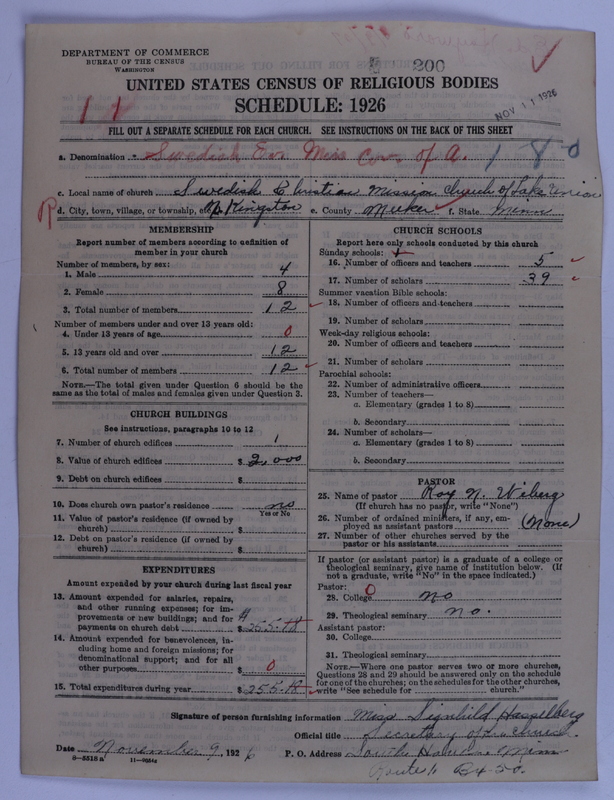 5 200
DEPARTMENT OF COMMERCE
BUREAU OF THE CENSUS
WASHINGTON
UNITED STATES CENSUS OF RELIGIOUS BODIES
SCHEDULE: 1926
NOV 11 1926
11
FILL OUT A SEPARATE SCHEDULE FOR EACH CHURCH. SEE INSTRUCTIONS ON THE BACK OF THIS SHEET
a. Denomination Swedish Ev. Miss Cov. of A. 1 8 0
c. Local name of church Swedish Christian Mission Church of Lake Union
d. City, town, village, or township, etc. N. Kingston e. County Meeker f. State Minn
MEMBERSHIP
Report number of members according to definition of
member in your church
Number of members, by sex:
1. Male 4
2. Female 8
3. Total number of members 12
Number of members under and over 13 years old:
4. Under 13 years of age 0
5. 13 years old and over 12
6. Total number of members 12
NOTE.—The total given under Question 6 should be
same as the total of males and females given under Question 3.
CHURCH BUILDINGS
See instructions, paragraphs 10 to 12
7. Number of church edifices 1
8. Value of church edifices $ 2,000
9. Debt on church edifices $
10. Does church own pastor's residence no
Yes or No
11. Value of pastor's residence (if owned by
church) $
12. Debt on pastor's residence (if owned by
church) $
EXPENDITURES
Amount expended by your church during last fiscal year
13. Amount expended for salaries, repairs,
and other running expenses; for im-
provements or new buildings; and for
payments on church debt $ 255.18
14. Amount expended for benevolences, in-
cluding home and foreign missions; for
denominational support; and for all
other purposes $ 0
15. Total expenditures during year $ 255.18
CHURCH SCHOOLS
Report here only schools conducted by this church
Sunday schools:
16. Number of officers and teachers 5
17. Number of scholars 39
Summer vacation Bible schools:
18. Number of officers and teachers
19. Number of scholars
Week-day religious schools:
20. Number of officers and teachers
21. Number of scholars
Parochial schools:
22. Number of administrative officers
23. Number of teachers—
a. Elementary (grades 1 to 8)
b. Secondary
24. Number of scholars—
a. Elementary (grades 1 to 8)
b. Secondary
PASTOR
25. Name of pastor Roy N. Wiberg
(If church has no pastor, write "None")
26. Number of ordained ministers, if any, em-
ployed as assistant pastors (None)
27. Number of other churches served by the
pastor or his assistants
If pastor (or assistant pastor) is a graduate of a college or
theological seminary, give name of institution below. (If
not a graduate, write "No" in the space indicated.)
Pastor:
28. College 0 no
29. Theological seminary no.
Assistant pastor:
30. College
31. Theological seminary
NOTE.—Where one pastor serves two or more churches,
Questions 28 and 29 should be answered only on the schedule
for one of the churches; on the schedules for the other churches,
write "See schedule for church."
Signature of person furnishing information Miss Signhild Hasselberg
Official title Secretary of the church.
Date November 9, 1926 P. O. Address South Haven Minn
8—5518a 11—9054 Route 1. Bx 50.